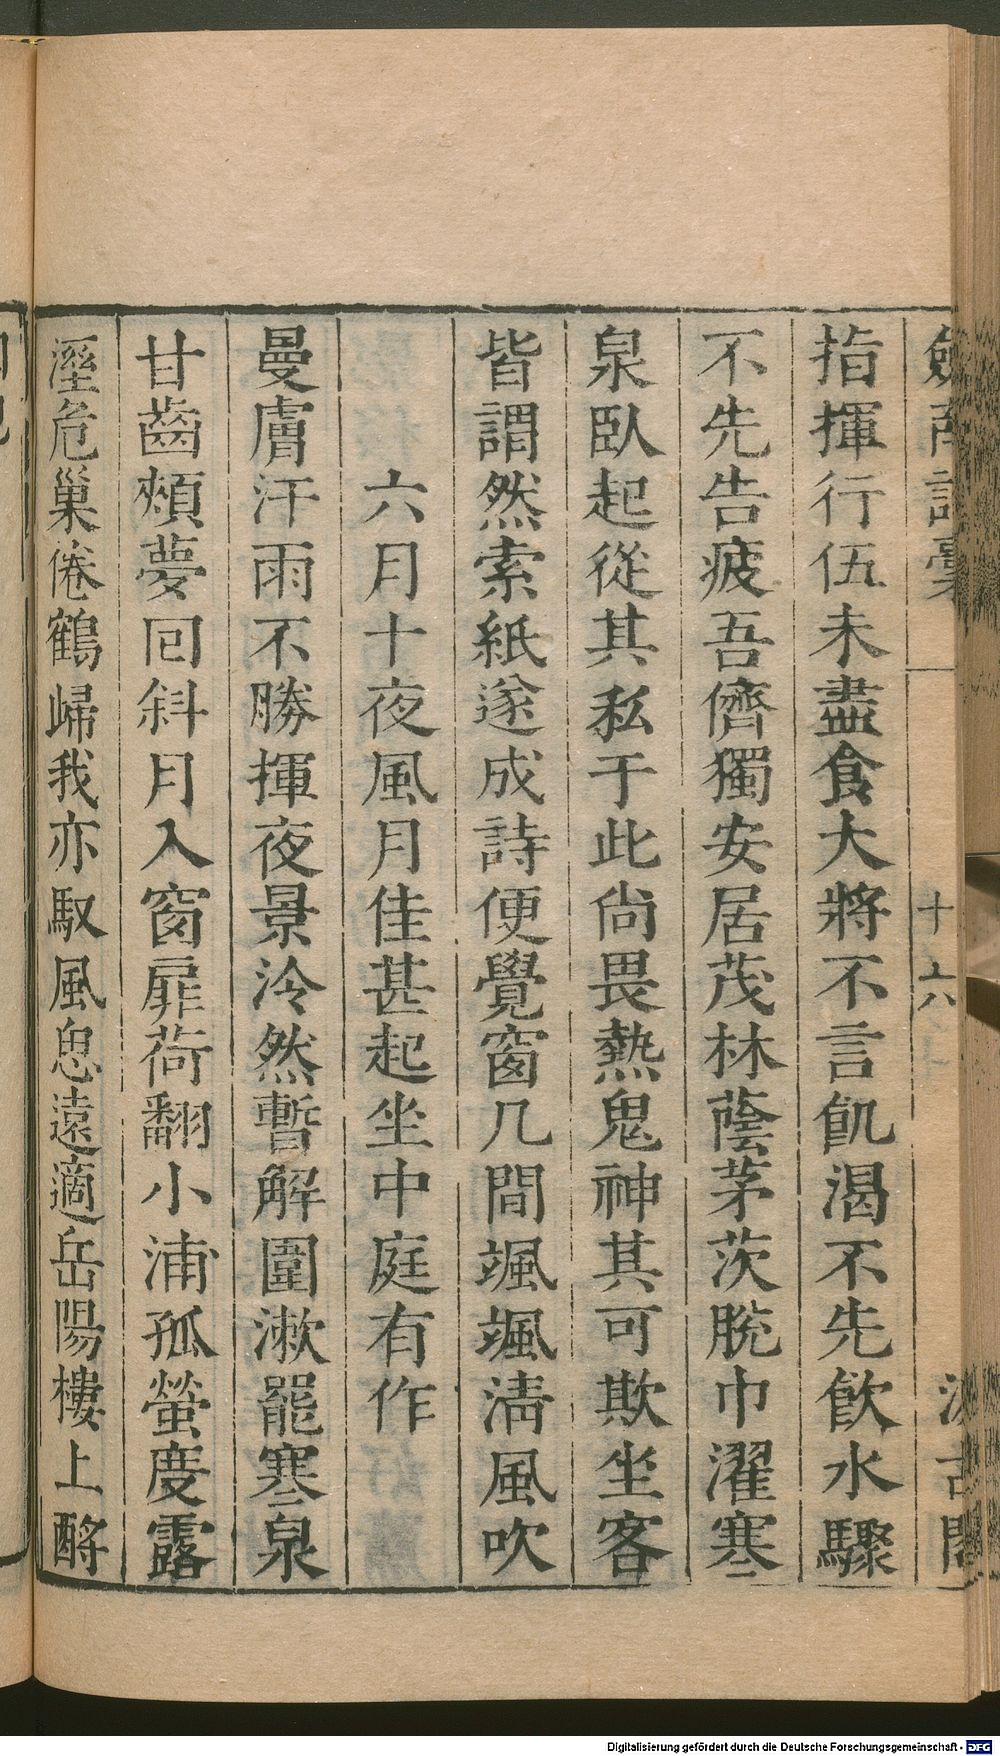 劒南詩稾
十六
汲古閣
指揮行伍未盡食大將不言飢渴不先飲水驟
不先告疲吾儕獨安居茂林蔭茅茨脫巾濯寒
泉臥起從其私于此尙畏熱鬼神其可欺坐客
皆謂然索紙遂成詩便覺窗几間颯颯淸風吹
六月十夜風月佳甚起坐中庭有作
曼膚汗雨不勝揮夜景泠然暫解圍漱罷寒泉
甘齒頰夢囘斜月入窗扉荷翻小浦孤螢度露
溼危巢倦鶴歸我亦馭風思遠適岳陽樓上醉
Digitalisierung gefördert durch die Deutsche Forschungsgemeinschaft - DFG